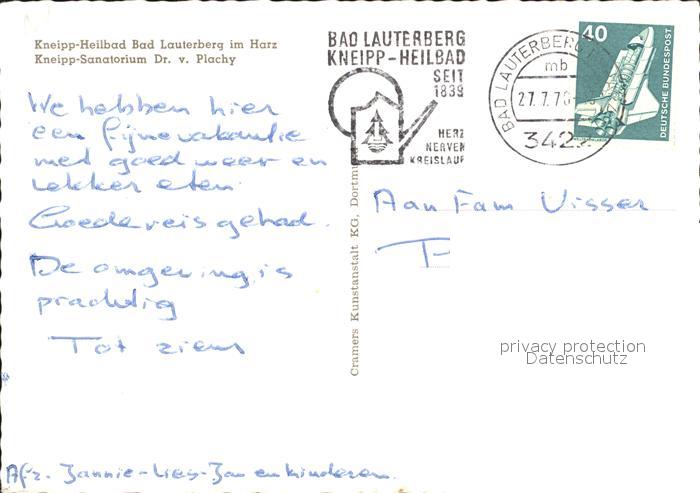 Kneipp-Heilbad Bad Lauterberg im Harz
Kneipp-Sanatorium Dr. v. Plachy
BAD LAUTERBERG
KNEIPP-HEILBAD
SEIT
1839
HERZ
NERVEN
KREISLAUF
BAD LAUTERBERG
mb
27.7.76
342
40
DEUTSCHE BUNDESPOST
We hebben hier
een fijne vakantie
met goed weer en
lekker eten.
Goede reis gehad.
De omgeving is
prachtig
Tot ziens
Afz. Jannie-Lies-Jan en kinderen.
Cramers Kunstanstalt KG, Dortmu
Aan Fam Visser
privacy protection
Datenschutz